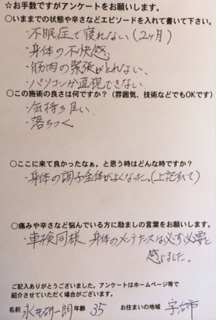 ☆お手数ですがアンケートをお願いします。
○いままでの状態や辛さなどエピソードを入れて書いて下さい。
・不眠症で寝れない(2ヶ月)
・身体の不快感
・筋肉の緊張がとれない
・パソコンが直視できない
○この施術の良さは何ですか？（雰囲気、技術などでもOKです）
・気持ち良い
・落ちつく
○ここに来て良かったなぁ。と思う時はどんな時ですか？
・身体の調子全体がよくなった。(上記されて)
○痛みや辛さなど悩んでいる方に励ましの言葉をお願いします。
・車検同様、身体のメンテナンスは必ず必要と
感じました。
ご記入ありがとうございました。アンケートはホームページ等で
紹介させていただく場合がございます。
名前 永井研一朗 年齢 35 お住まいの地域 宇治市